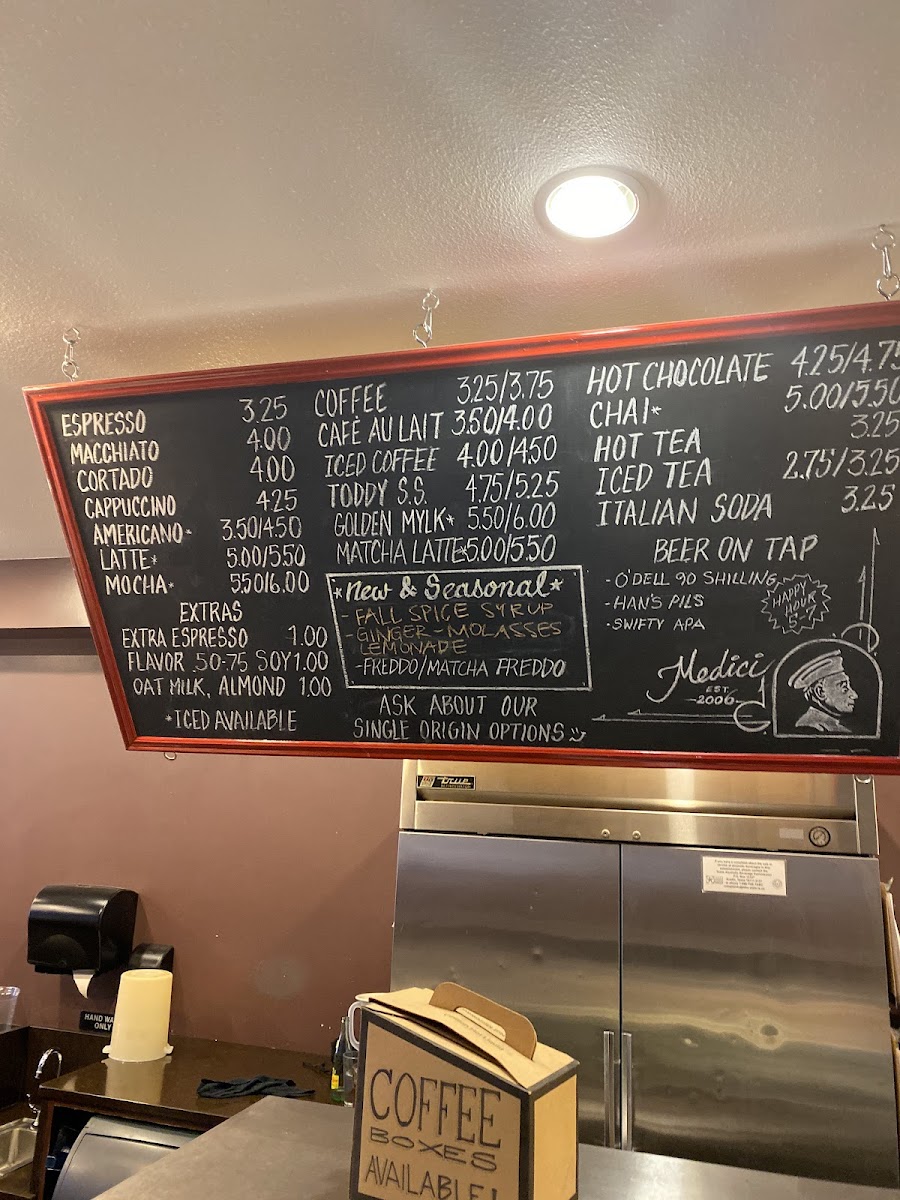 ESPRESSO 3.25
MACCHIATO 4.00
CORTADO 4.00
CAPPUCCINO 4.25
AMERICANO* 3.50/4.50
LATTE* 5.00/5.50
MOCHA* 5.50/6.00
EXTRAS
EXTRA ESPRESSO 1.00
FLAVOR .50-75 SOY 1.00
OAT MILK, ALMOND 1.00
*ICED AVAILABLE
COFFEE 3.25/3.75
CAFÉ AU LAIT 3.50/4.00
ICED COFFEE 4.00/4.50
TODDY S.S. 4.75/5.25
GOLDEN MYLK* 5.50/6.00
MATCHA LATTE* 5.00/5.50
*New & Seasonal*
- FALL SPICE SYRUP
- GINGER-MOLASSES
LEMONADE
- FREDDO/MATCHA FREDDO
ASK ABOUT OUR
SINGLE ORIGIN OPTIONS
HOT CHOCOLATE 4.25/4.75
CHAI* 5.00/5.50
HOT TEA 3.25
ICED TEA 2.75/3.25
ITALIAN SODA 3.25
BEER ON TAP
- O'DELL 90 SHILLING
- HAN'S PILS
- SWIFTY APA
HAPPY
HOUR
5-7
Medici
EST.
-2006-
true
HAND WA
ONLY
COFFEE
BOXES
AVAILABLE!